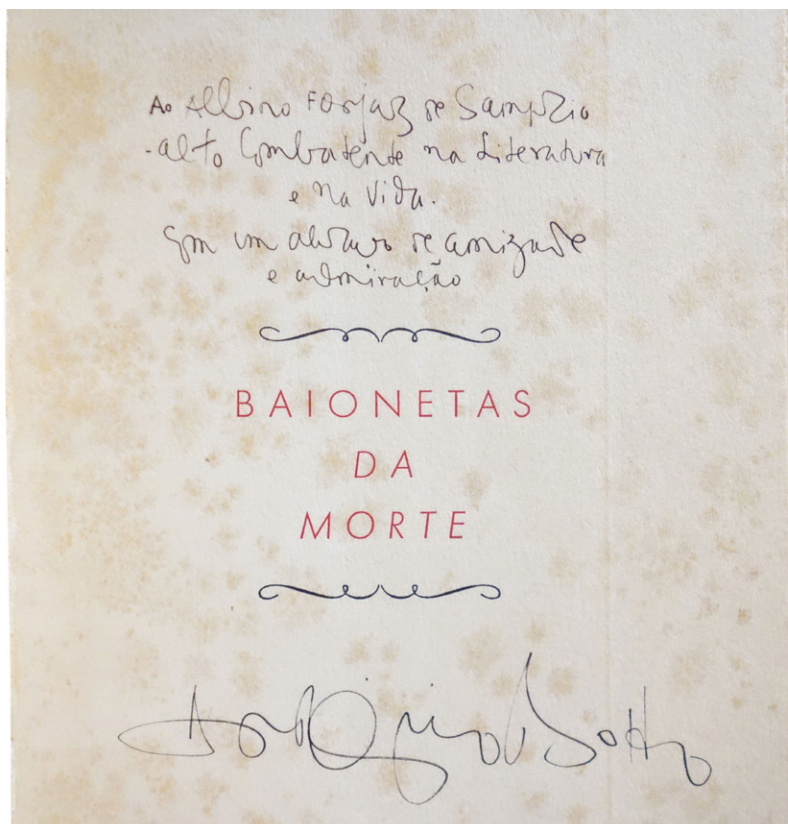 Ao Albino Forjaz de Sampaio
- alto Combatente na Literatura
e na Vida.
Com um abraço de amizade
e admiração
BAIONETAS
DA
MORTE
António Botto